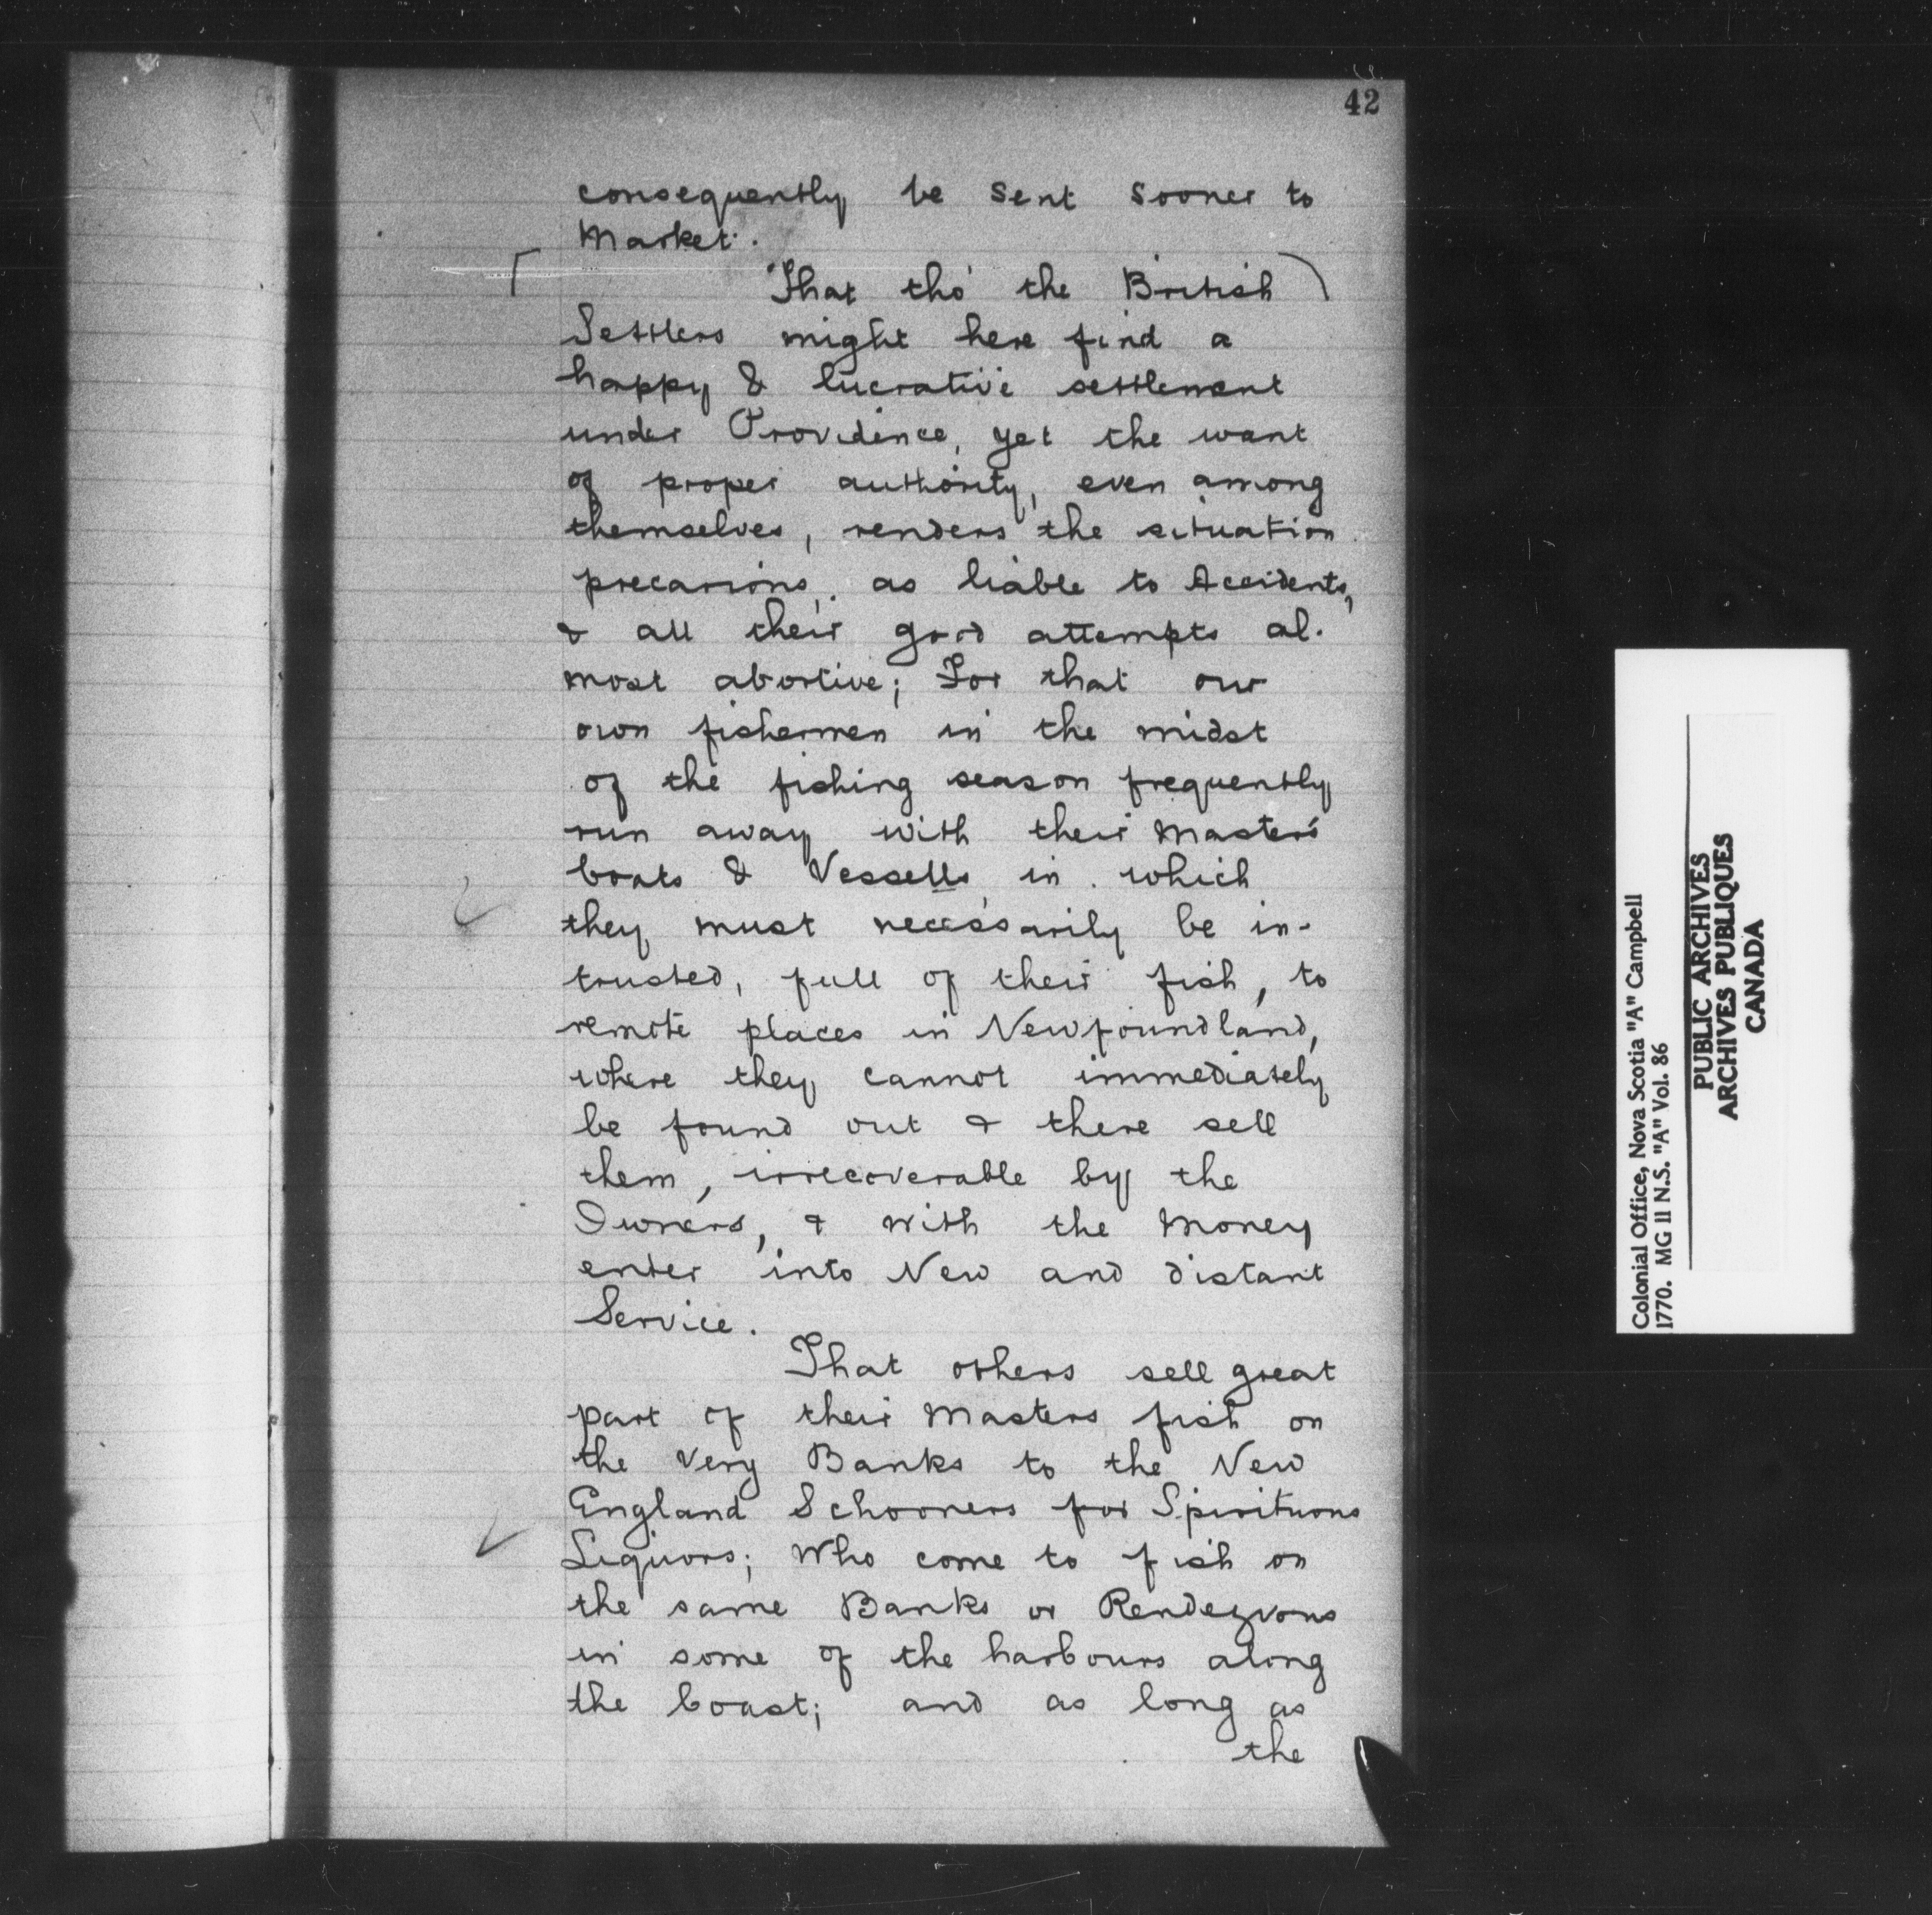 42
consequently be sent sooner to
Market.
That tho' the British
Settlers might here find a
happy & lucrative settlement
under Providence, yet the want
of proper authority, even among
themselves, renders the situation
precarious, as liable to Accidents,
& all their good attempts al-
most abortive; For that our
own fishermen in the midst
of the fishing season frequently
run away with their Master's
boats & Vessells in which
they must necessarily be in-
trusted, full of their fish, to
remote places in Newfoundland,
where they cannot immediately
be found out & there sell
them, irrecoverable by the
Owners, & with the Money
enter into New and distant
Service.
That others sell great
part of their Masters fish on
the very Banks to the New
England Schooners for Spirituous
Liquors; Who come to fish on
the same Banks or Rendezvous
in some of the harbours along
the Coast; and as long as
the
Colonial Office, Nova Scotia "A" Campbell
1770. MG 11 N.S. "A" Vol. 86
PUBLIC ARCHIVES
ARCHIVES PUBLIQUES
CANADA